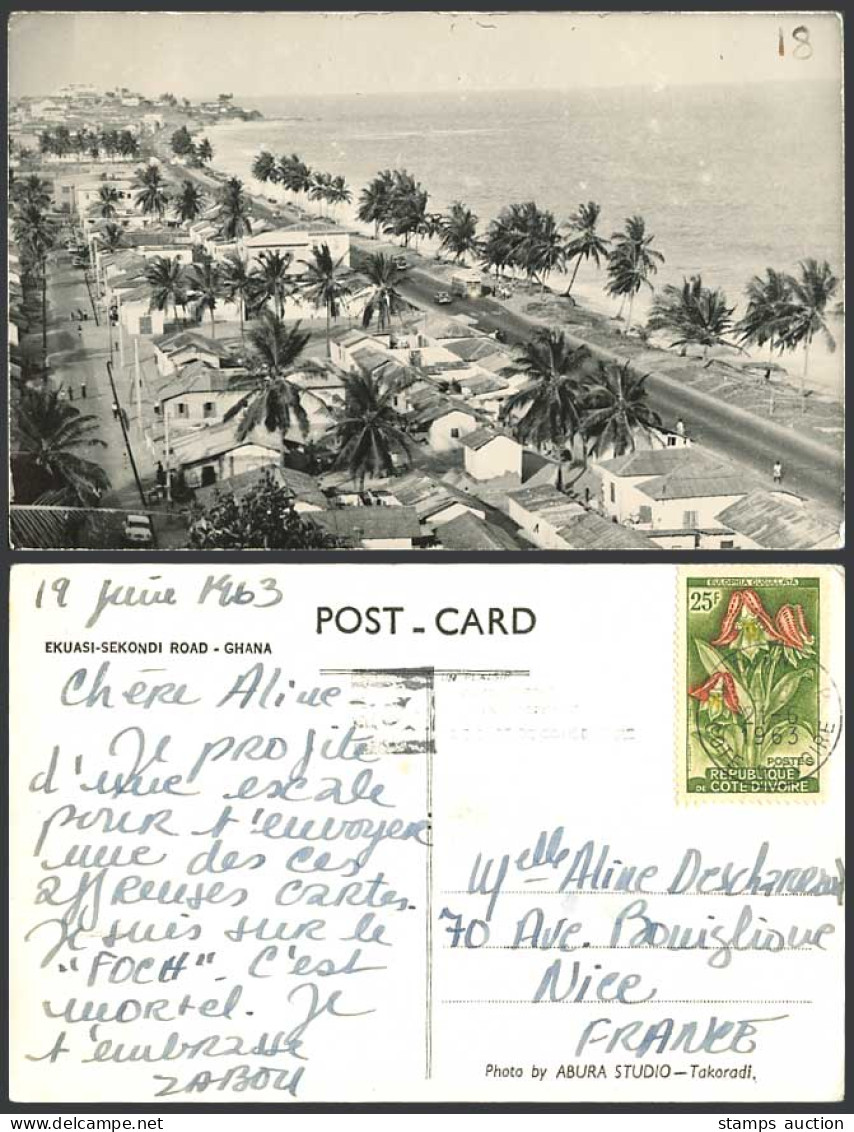 18
19 juin 1963
POST-CARD
EKUASI-SEKONDI ROAD - GHANA
Chère Aline -
Je profite
d'une escale
pour t'envoyer
une des ces
affreuses cartes.
Je suis sur le
"FOCH". C'est
mortel. Je
t'embrasse
ZABOU
EULOPHIA CUCULLATA
25F
6
1963
CÔTE D'IVOIRE
POSTES
REPUBLIQUE
DE COTE D'IVOIRE
Melle Aline Deschaneaux
70 Ave.
Nice
FRANCE
Photo by ABURA STUDIO-Takoradi.
stamps auction